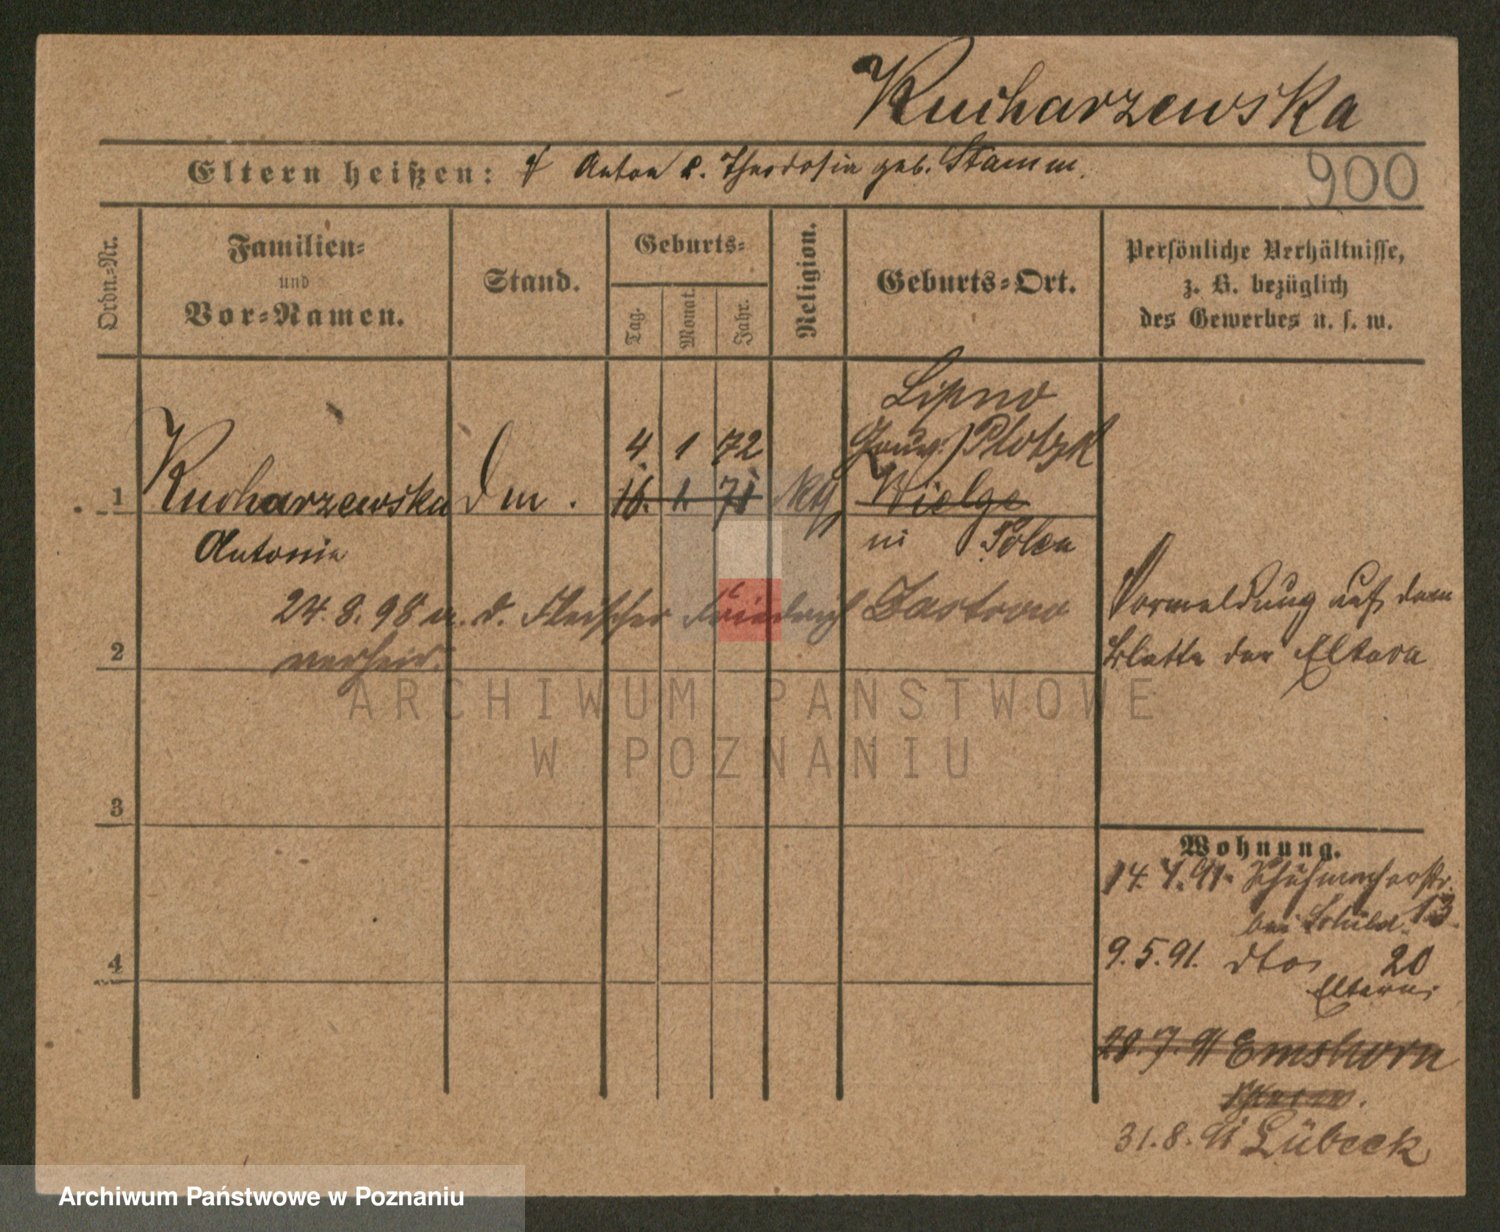 Kucharzewska
Eltern heißen: Anton u. Theodosia geb. Stamm.
900
Ordn.-Nr.
Familien-
und
Vor-Namen.
Stand.
Geburts-
Tag.
Monat.
Jahr.
Religion.
Geburts-Ort.
Persönliche Verhältnisse,
z. B. bezüglich
des Gewerbes u. s. w.
Lipno
4. 1 72
Gouv. Plotzk
1 Kucharzewska 16. 1. 71 Wielge
Antonie
in Polen
24.8.98 m. d. Fleischer Friedrich Jastrow
verheir.
Vormeldung auf dem
Blatte der Eltern
2
ARCHIWUM PAŃSTWOWE
W POZNANIU
3
4
Wohnung.
14.4.91. Schuhmacherstr.
bei 13.
9.5.91. dto 20
Eltern
28.7.91 Emshorn
31.8.91 Lübeck
Archiwum Państwowe w Poznaniu